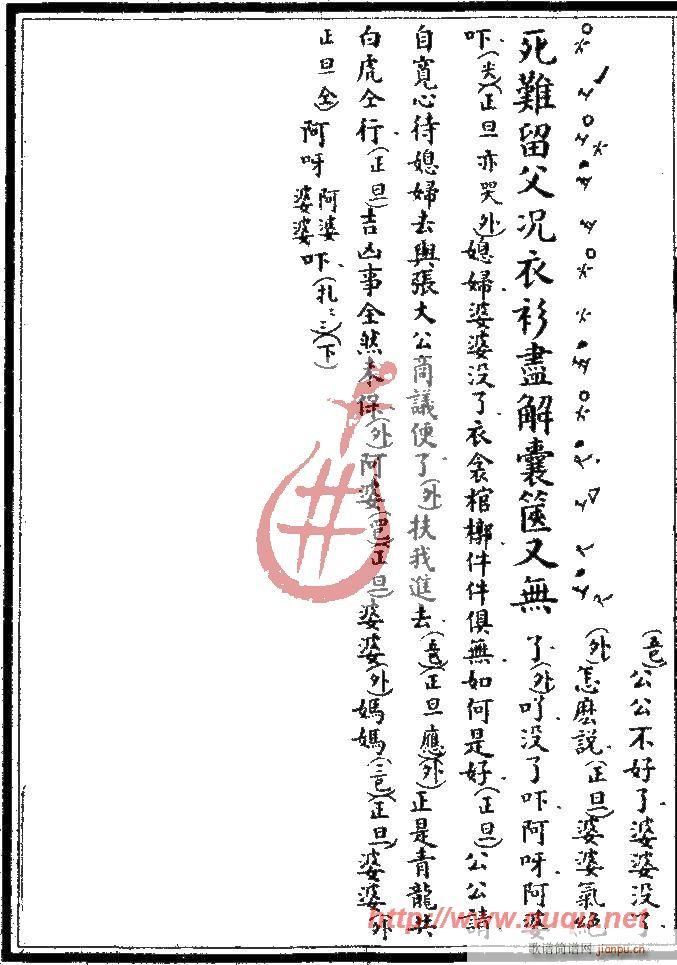 死難留父况衣衫盡解囊篋又無
公公不好了婆婆没了
(外)怎麽說(正旦)婆婆氣絶
了(外)吖没了吓阿呀阿婆
吓(尖)(正旦亦哭外)媳婦婆婆没了衣衾棺槨件件俱無如何是好(正旦)公公請
自寬心待媳婦去與張大公商議便了(外)扶我進去(正旦應外)正是青龍共
白虎仝行(正旦)吉凶事全然未保(外)阿婆(正旦)婆婆(外)媽媽(三己)(正旦)婆婆(外
正旦仝)阿呀阿婆婆婆吓(扎三)(下)
http://www.ququ.net
歌谱简谱网 jianpu.cn